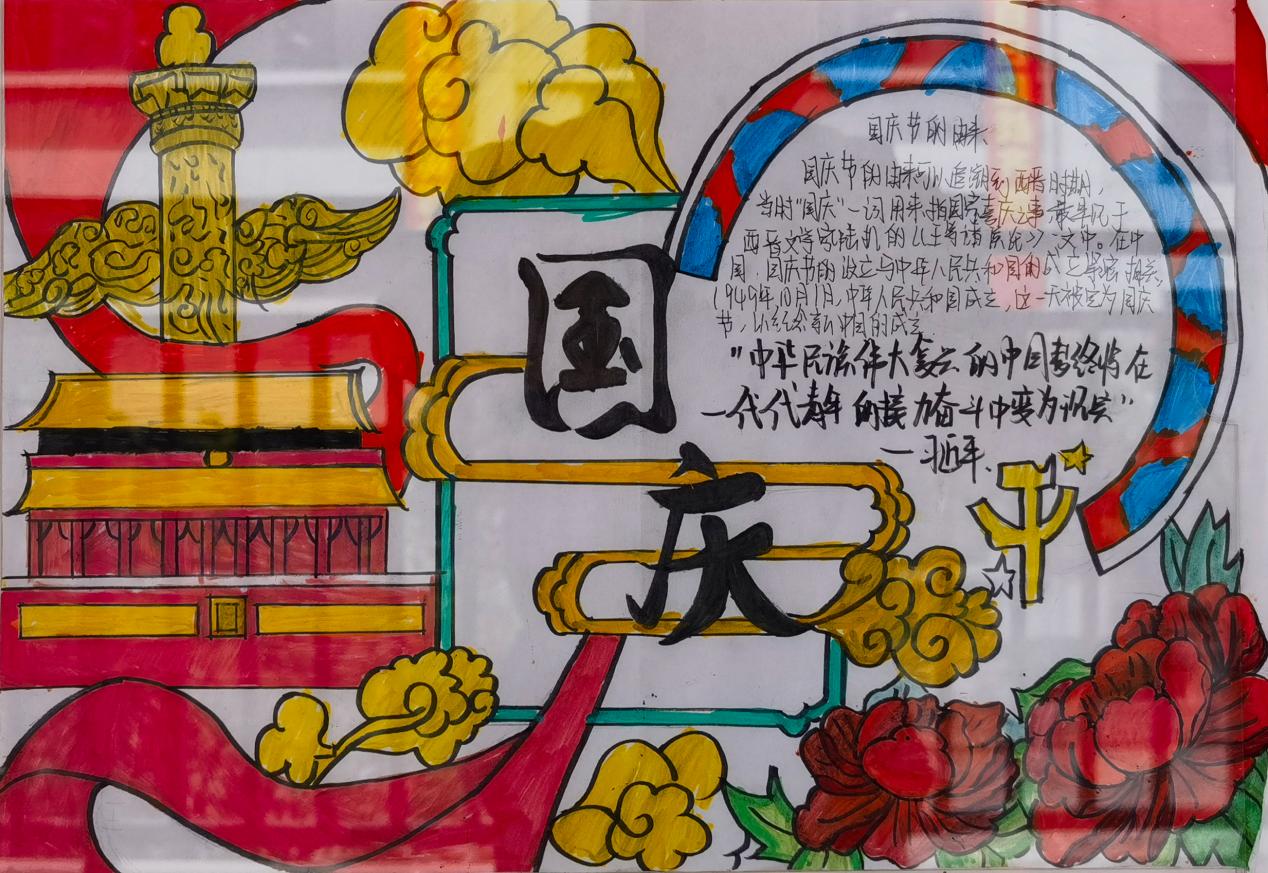 国庆
国庆节的由来
国庆节的由来可以追溯到西晋时期,
当时"国庆"一词用来指国家喜庆之事,最早见于
西晋文学家陆机的《五等诸侯论》一文中。在中
国,国庆节的设立与中华人民共和国的成立紧密相关,
1949年10月1日,中华人民共和国成立,这一天被定为国庆
节,以纪念新中国的成立
"中华民族伟大复兴的中国梦终将在
一代代青年的接力奋斗中变为现实"
一习近平.